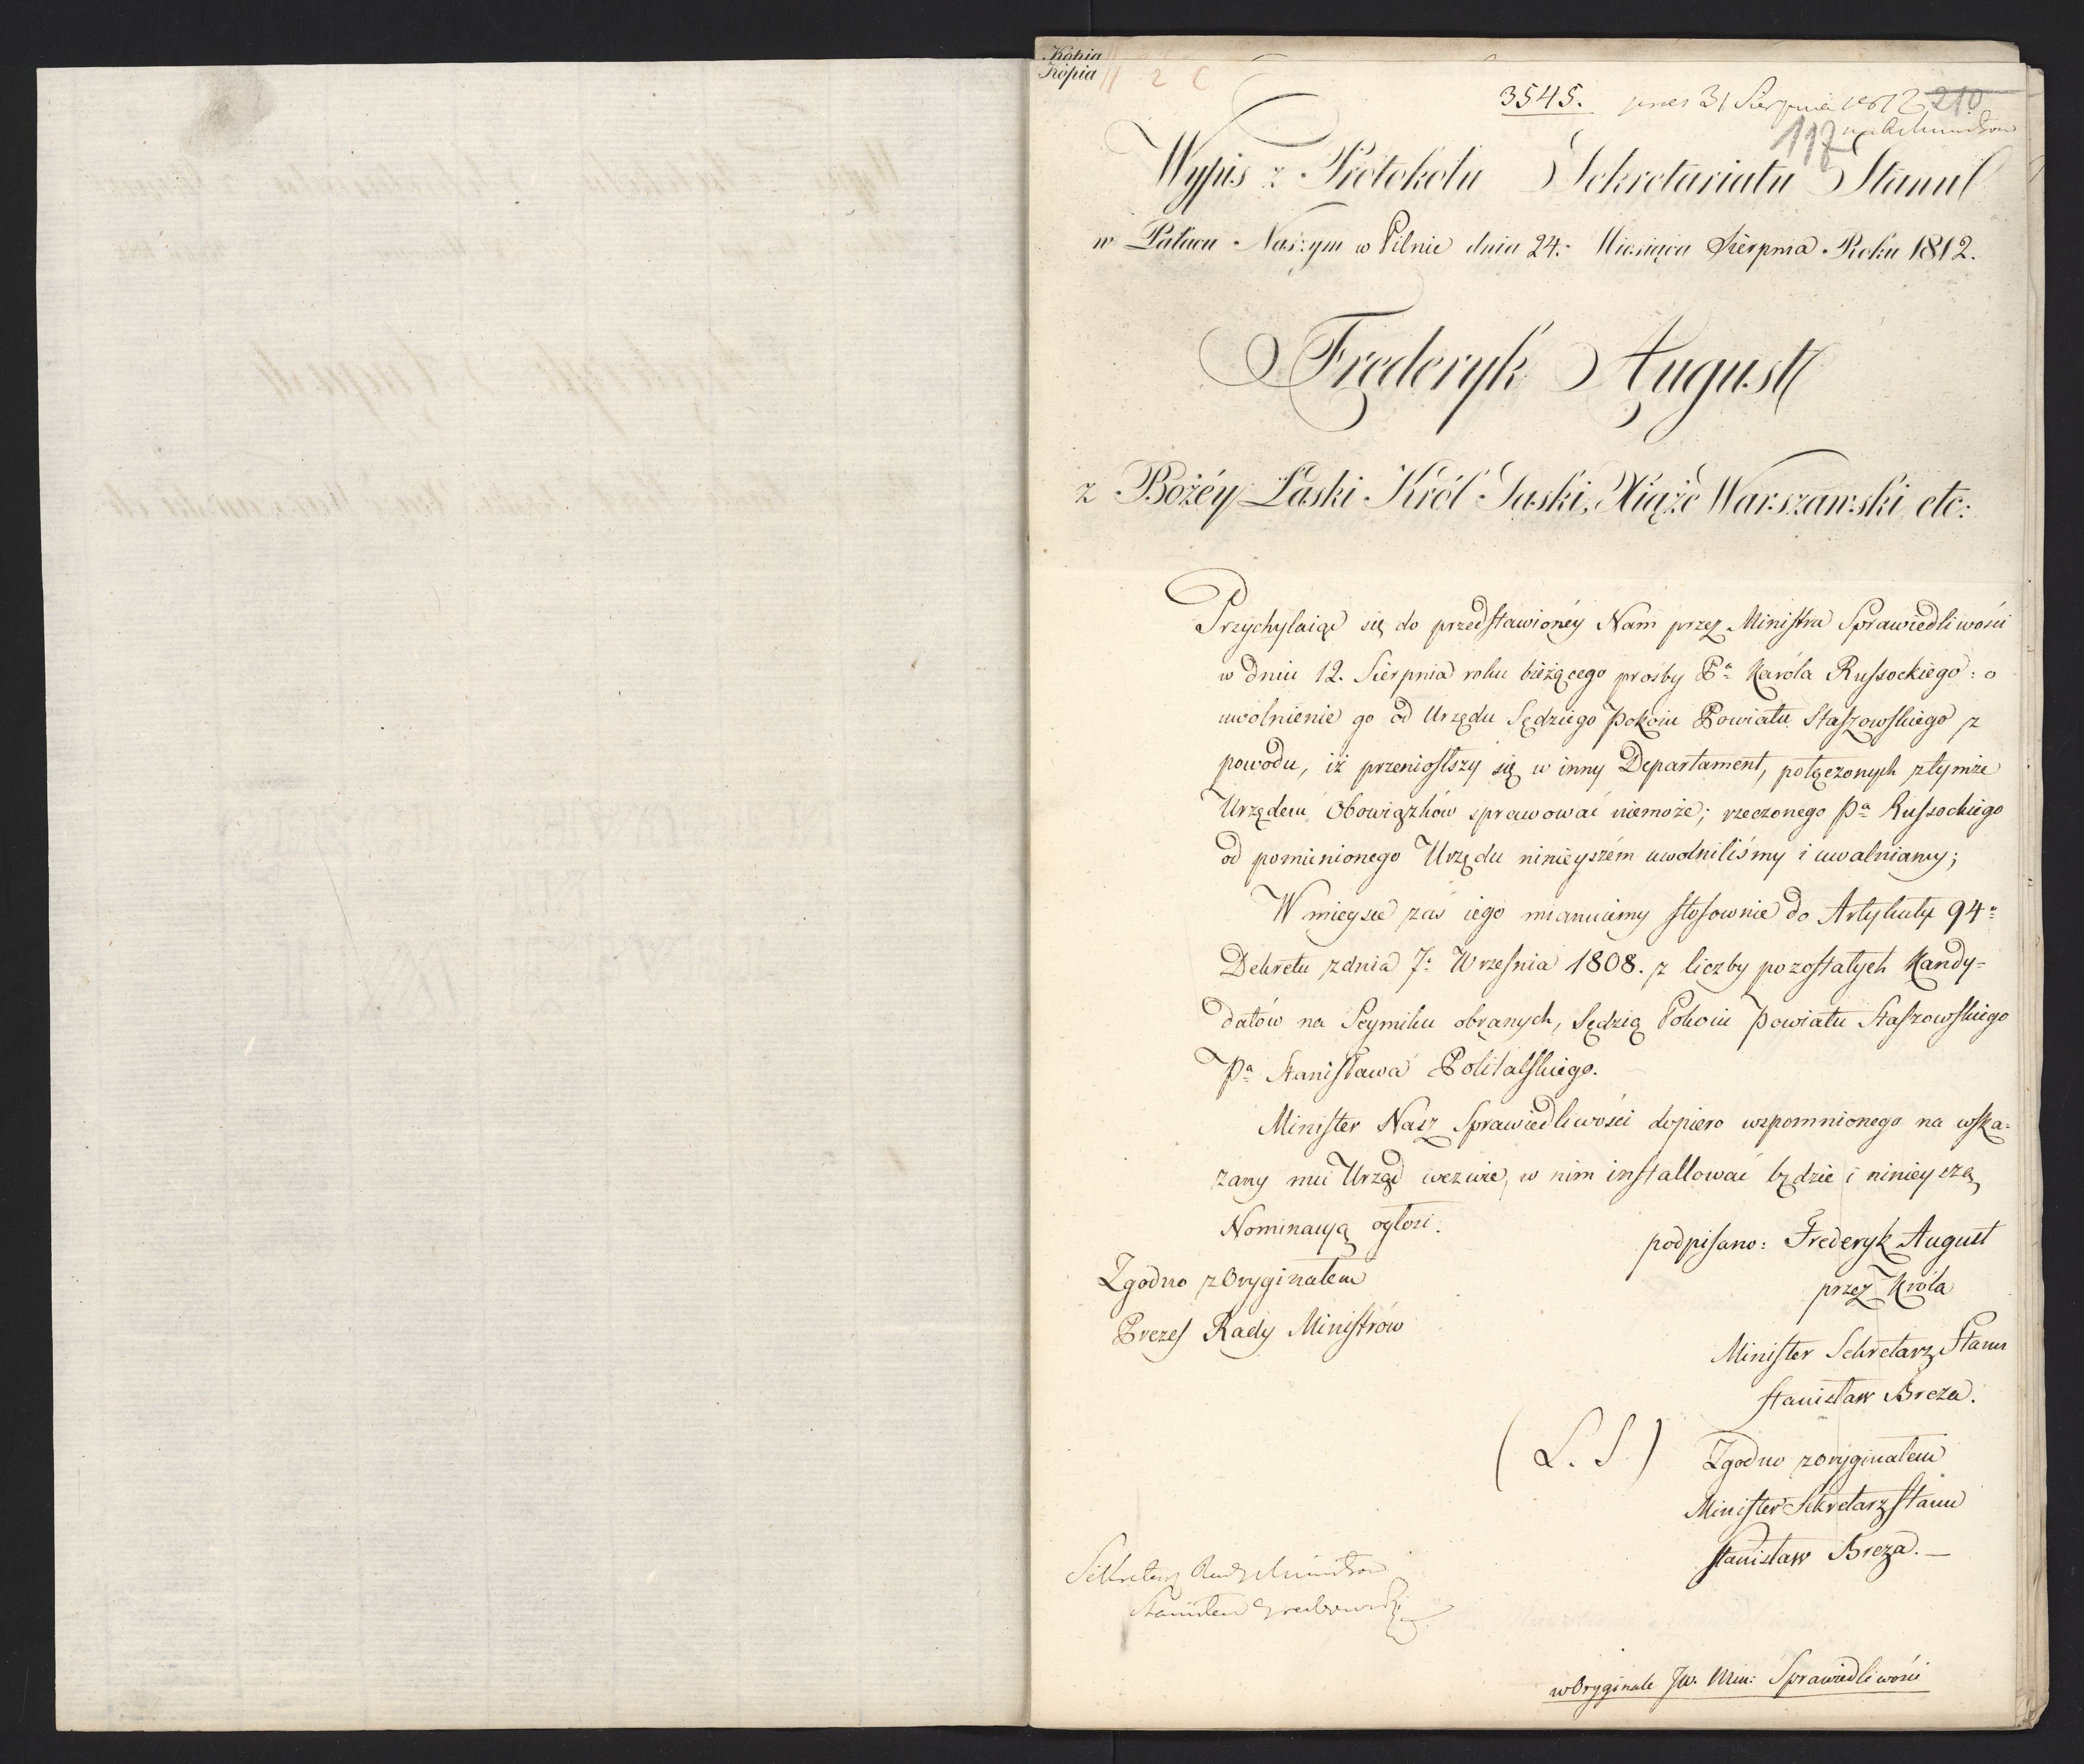 Kopia
Kopia
3545. praes 31 Sierpnia 1812 210
117
Wypis z Protokołu Sekretariatu Stanu
w Pałacu Naszym w Pilnie dnia 24. Miesiąca Sierpnia Roku 1812.
Frederyk August
z Bożéy Łaski Król Saski, Xiąże Warszawski etc:
Przychylaiąc się do przedstawionéy Nam przez Ministra Sprawiedliwości
w dniu 12. Sierpnia roku bieżącego prośby Pa Karóla Russockiego: o
uwolnienie go od Urzędu Sędziego Pokoiu Powiatu Staszowskiego z
powodu, iż przeniosłszy się w inny Departament, połączonych ztymże
Urzędem Obowiązków sprawować niemoże; rzeczonego Pa Russockiego
od pomienionego Urzędu ninieyszém uwolniliśmy i uwalniamy;
W mieysce zaś iego mianuiemy stosownie do Artykułu 94:
Dekretu z dnia 7: Września 1808. z liczby pozostałych Kandy-
datów na Seymiku obranych, Sędzią Pokoiu Powiatu Staszowskiego
Pa Stanisława Politalskiego.
Minister Nasz Sprawiedliwości dopiero wspomnionego na wska-
zany mu Urząd wezwie, w nim installować będzie i ninieyszą
Nominacyą ogłosi.
podpisano: Frederyk August
przez Króla
Minister Sekretarz Stanu
Stanisław Breza.
Zgodno z Oryginałem
Prezes Rady Ministrów
(L. S.)
Zgodno z oryginałem
Minister Sekretarz Stanu
Stanisław Breza. —
Sekretarz Rady Ministrów
Stanisław Grabowski
w Oryginale JW. Min: Sprawiedliwości